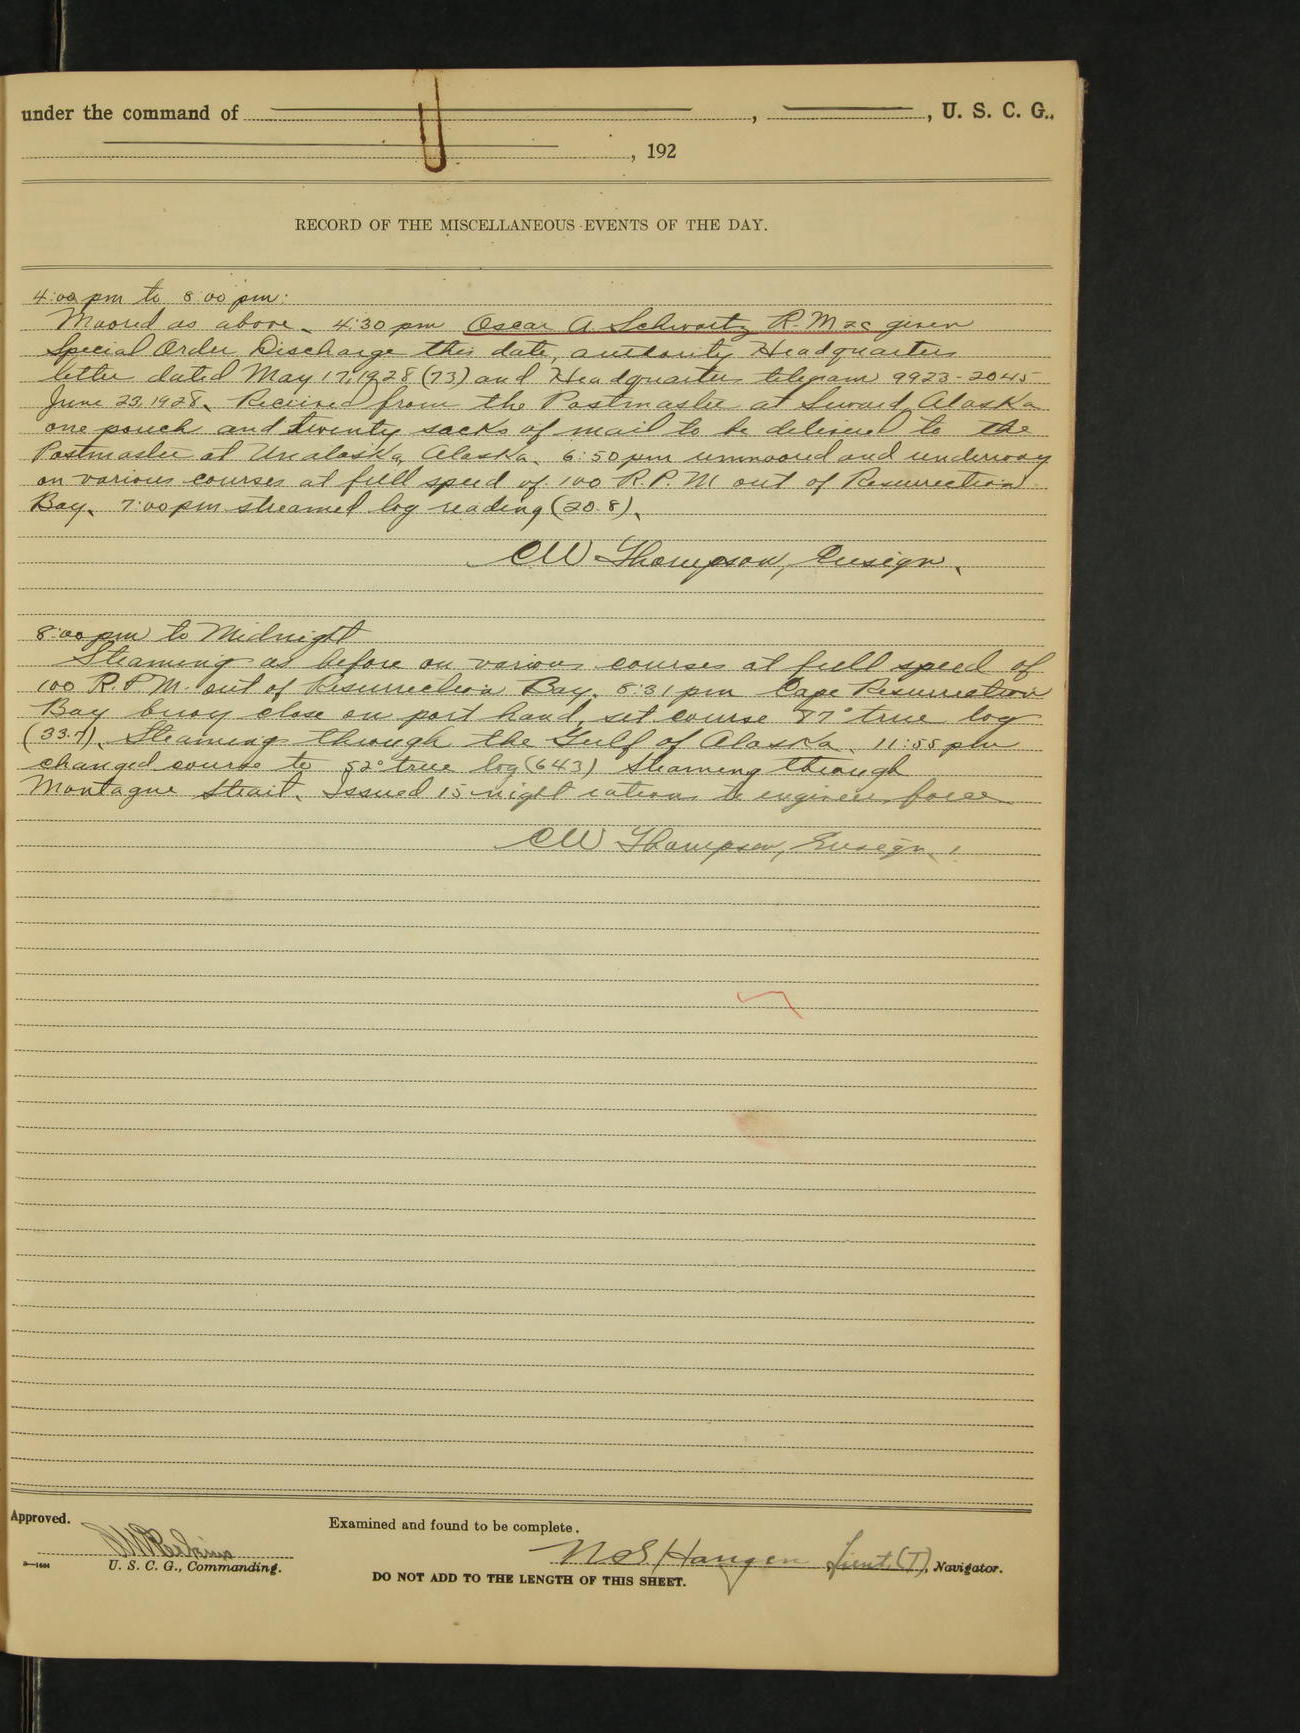 under the command of , , U. S. C. G.,
, 192
RECORD OF THE MISCELLANEOUS EVENTS OF THE DAY.
4:00 pm to 8:00 pm:
Moored as above. 4:30 pm Oscar A Schwartz R.M 2c given
Special Order Discharge this date, authority Headquarters
letter dated May 17, 1928 (73) and Headquarters telegram 9923-2045
June 23, 1928. Received from the Postmaster at Seward Alaska
one pouch and twenty sacks of mail to be delivered to the
Postmaster at Unalaska, Alaska. 6:50 pm unmoored and underway
on various courses at full speed of 100 R.P.M out of Resurrection
Bay. 7:00 pm streamed log reading (20.8).
CW Thompson, Ensign.
8:00 pm to Midnight
Steaming as before on various courses at full speed of
100 R.P.M. out of Resurrection Bay. 8:31 pm Cape Resurrection
Bay buoy close on port hand, set course true log
Steaming through the Gulf of Alaska. 11:55 pm
changed course to 52° true log (64.3) Steaming through
Montague Strait. Issued 15 night rations to engineer force
CW Thompson, Ensign.
Approved.
Examined and found to be complete.
U. S. C. G., Commanding.
Lieut. (T), Navigator.
DO NOT ADD TO THE LENGTH OF THIS SHEET.